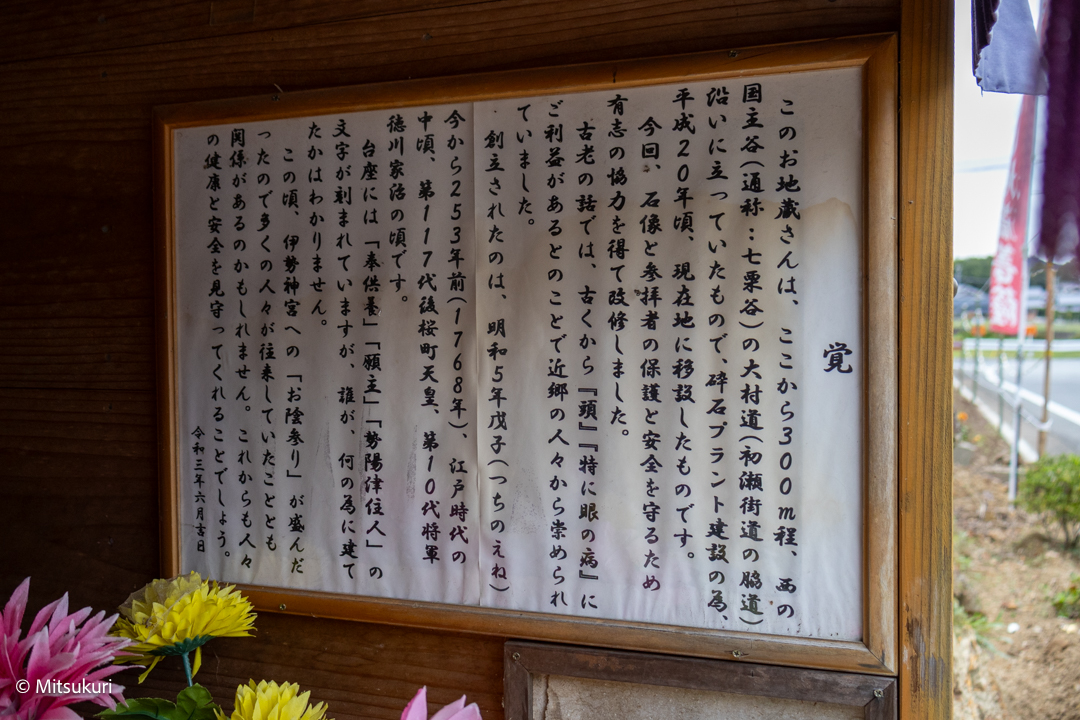 覚
このお地蔵さんは、ここから300m程、西の
国主谷(通称：七栗谷)の大村道(初瀬街道の脇道)
沿いに立っていたもので、砕石プラント建設の為、
平成20年頃、現在地に移設したものです。
今回、石像と参拝者の保護と安全を守るため
有志の協力を得て改修しました。
古老の話では、古くから『頭』『特に眼の病』に
ご利益があるとのことで近郷の人々から崇められ
ていました。
創立されたのは、明和5年戊子(つちのえね)
今から253年前(1768年)、江戸時代の
中頃、第117代後桜町天皇、第10代将軍
徳川家治の頃です。
台座には「奉供養」「願主」「勢陽津住人」の
文字が刻まれていますが、誰が、何の為に建て
たかはわかりません。
この頃、伊勢神宮への「お陰参り」が盛んだ
ったので多くの人々が往来していたこととも
関係があるのかもしれません。これからも人々
の健康と安全を見守ってくれることでしょう。
令和三年六月吉日
© Mitsukuri